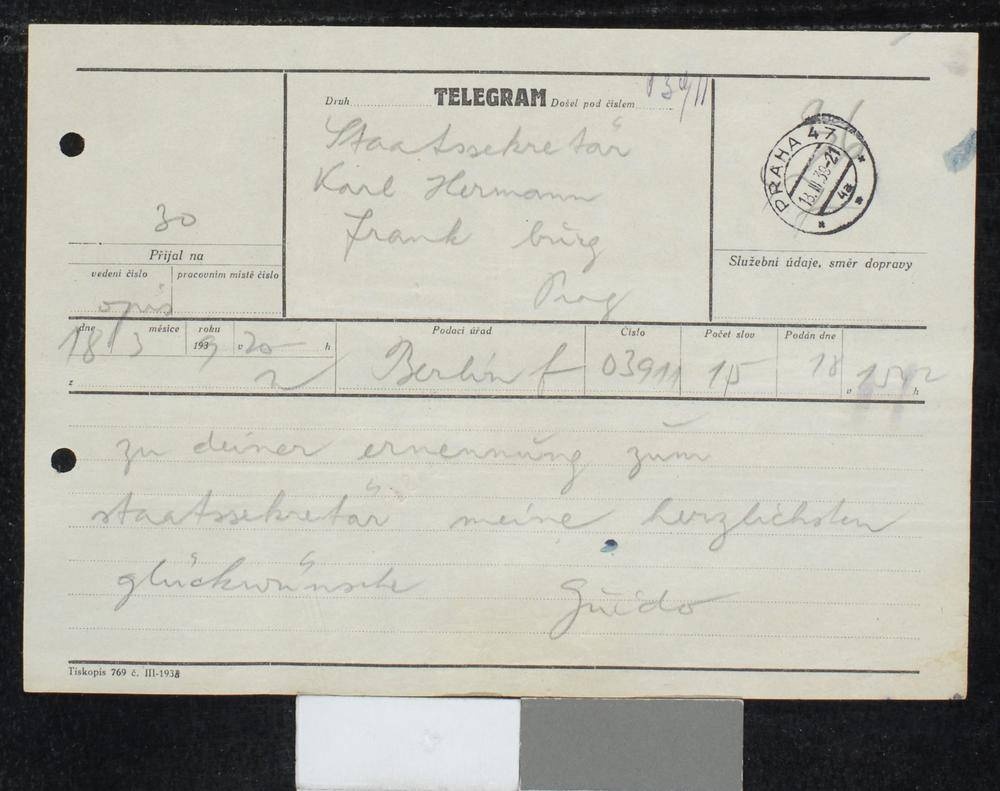 Druh TELEGRAM Došel pod číslem
Staatssekretär
Karl Hermann
Frank burg
Prag
30
Přijal na
vedení číslo pracovním místě číslo
opis
PRAHA 47
18.III.39-21
4a
Služební údaje, směr dopravy
dne měsíce roku Podací úřad Číslo Počet slov Podán dne
18 3 1939 v 20 h Berlin f 03911 15 18
z v h
zu deiner ernennung zum
staatssekretär meine herzlichsten
glückwünsche Guido
Tiskopis 769 č. III-1938